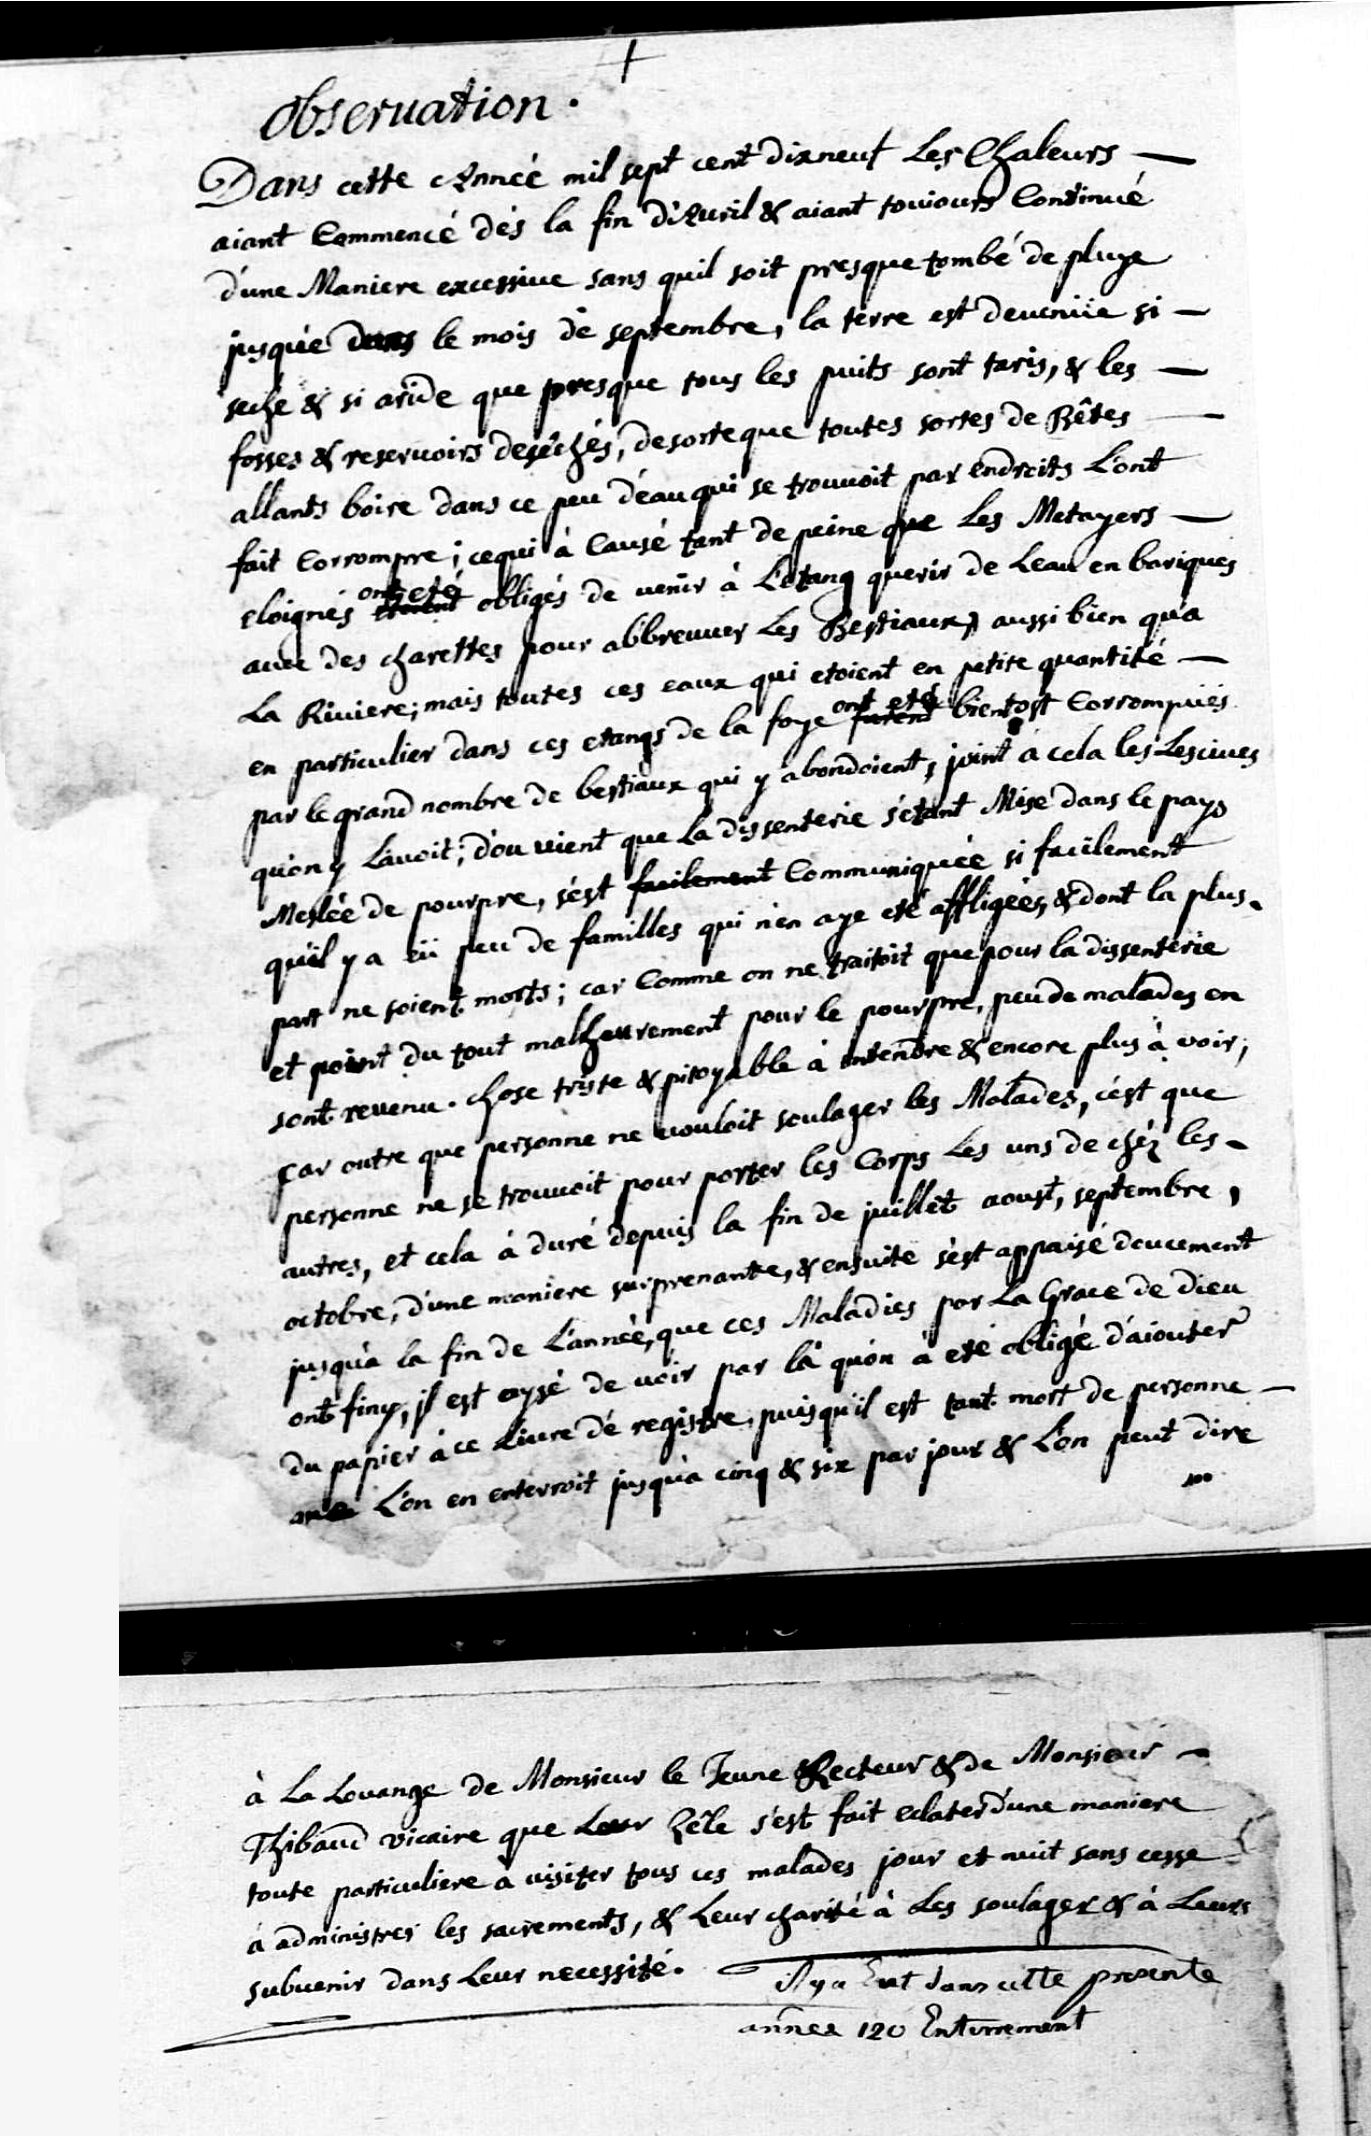 +
Observation.
Dans cette Année mil sept cent dixneuf Les Chaleurs —
aiant Commencé dés la fin d'Auril & aiant touiours Continué
d'une Maniere excessiue sans quil soit presque tombé de pluye
jusquée dans le mois de septembre, la terre est deuenüe si —
seche & si aride que presque tous les puits sont taris, & les —
fosses & reseruoirs desêchés, desorteque toutes sortes de Bêtes —
allants boire dans ce peu d'eau qui se trouuoit par endroits L'ont
fait Corrompre; cequi à Causé tant de peine que Les Metayers —
eloignés ont eté obligés de uenir à L'etang querir de Leau en bariques
auec des charettes pour abbreuuer Les Bestiaux, aussi bien qu'a
La Riuiere; mais toutes ces eaux qui etoient en petite quantité —
en particulier dans ces etangs de la foye ont eté bientost Corrompuës
par le grand nombre de bestiaux qui y abondoient, joint à cela les Lesciues
qu'on y Lauoit; d'ou uient que La dissenterie s'etant Mise dans le pays
Meslée de pourpre, s'est facilement Communiquée si facilement
qu'il y a eü peu de familles qui n'en aye eté affligées, & dont la plus-
part ne soient morts; car Comme on ne traitoit que pour la dissenterie
et point du tout malheurement pour le pourpre, peu de malades en
sont reuenu. chose triste & pitoyable à entendre & encore plus à voir;
Car outre que personne ne uouloit soulager les Malades, c'est que
personne ne se trouuoit pour porter les Corps Les uns de chéz les-
autres, et cela à duré depuis la fin de juillet aoust, septembre,
octobre, d'une maniere surprenante, & ensuite s'est appaisé doucement
jusqu'a la fin de L'année, que ces Maladies par La Grace de Dieu
ont finy, il est aysé de uoir par là qu'on à eté obligé d'aiouter
du papier à ce Liure de registre, puisqu'il est tant mort de personne —
que L'on en enterroit jusqu'a cinq & six par jour & L'on peut dire
à La Louange de Monsieur le Jeune Recteur & de Monsieur —
Thibaud vicaire que Leur Zêle s'est fait eclater d'une maniere
toute particuliere à uisiter tous ces malades jour et nuit sans cesse
à administrer les sacrements, & Leur charité à Les soulager & à Leurs
subuenir dans Leur necessité.
Il y a Eut dans cette presente
année 120 Enterrement